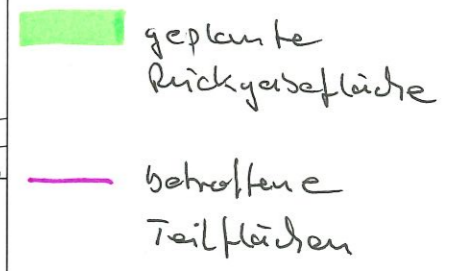 geplante
Rückgabefläche
betroffene
Teilflächen